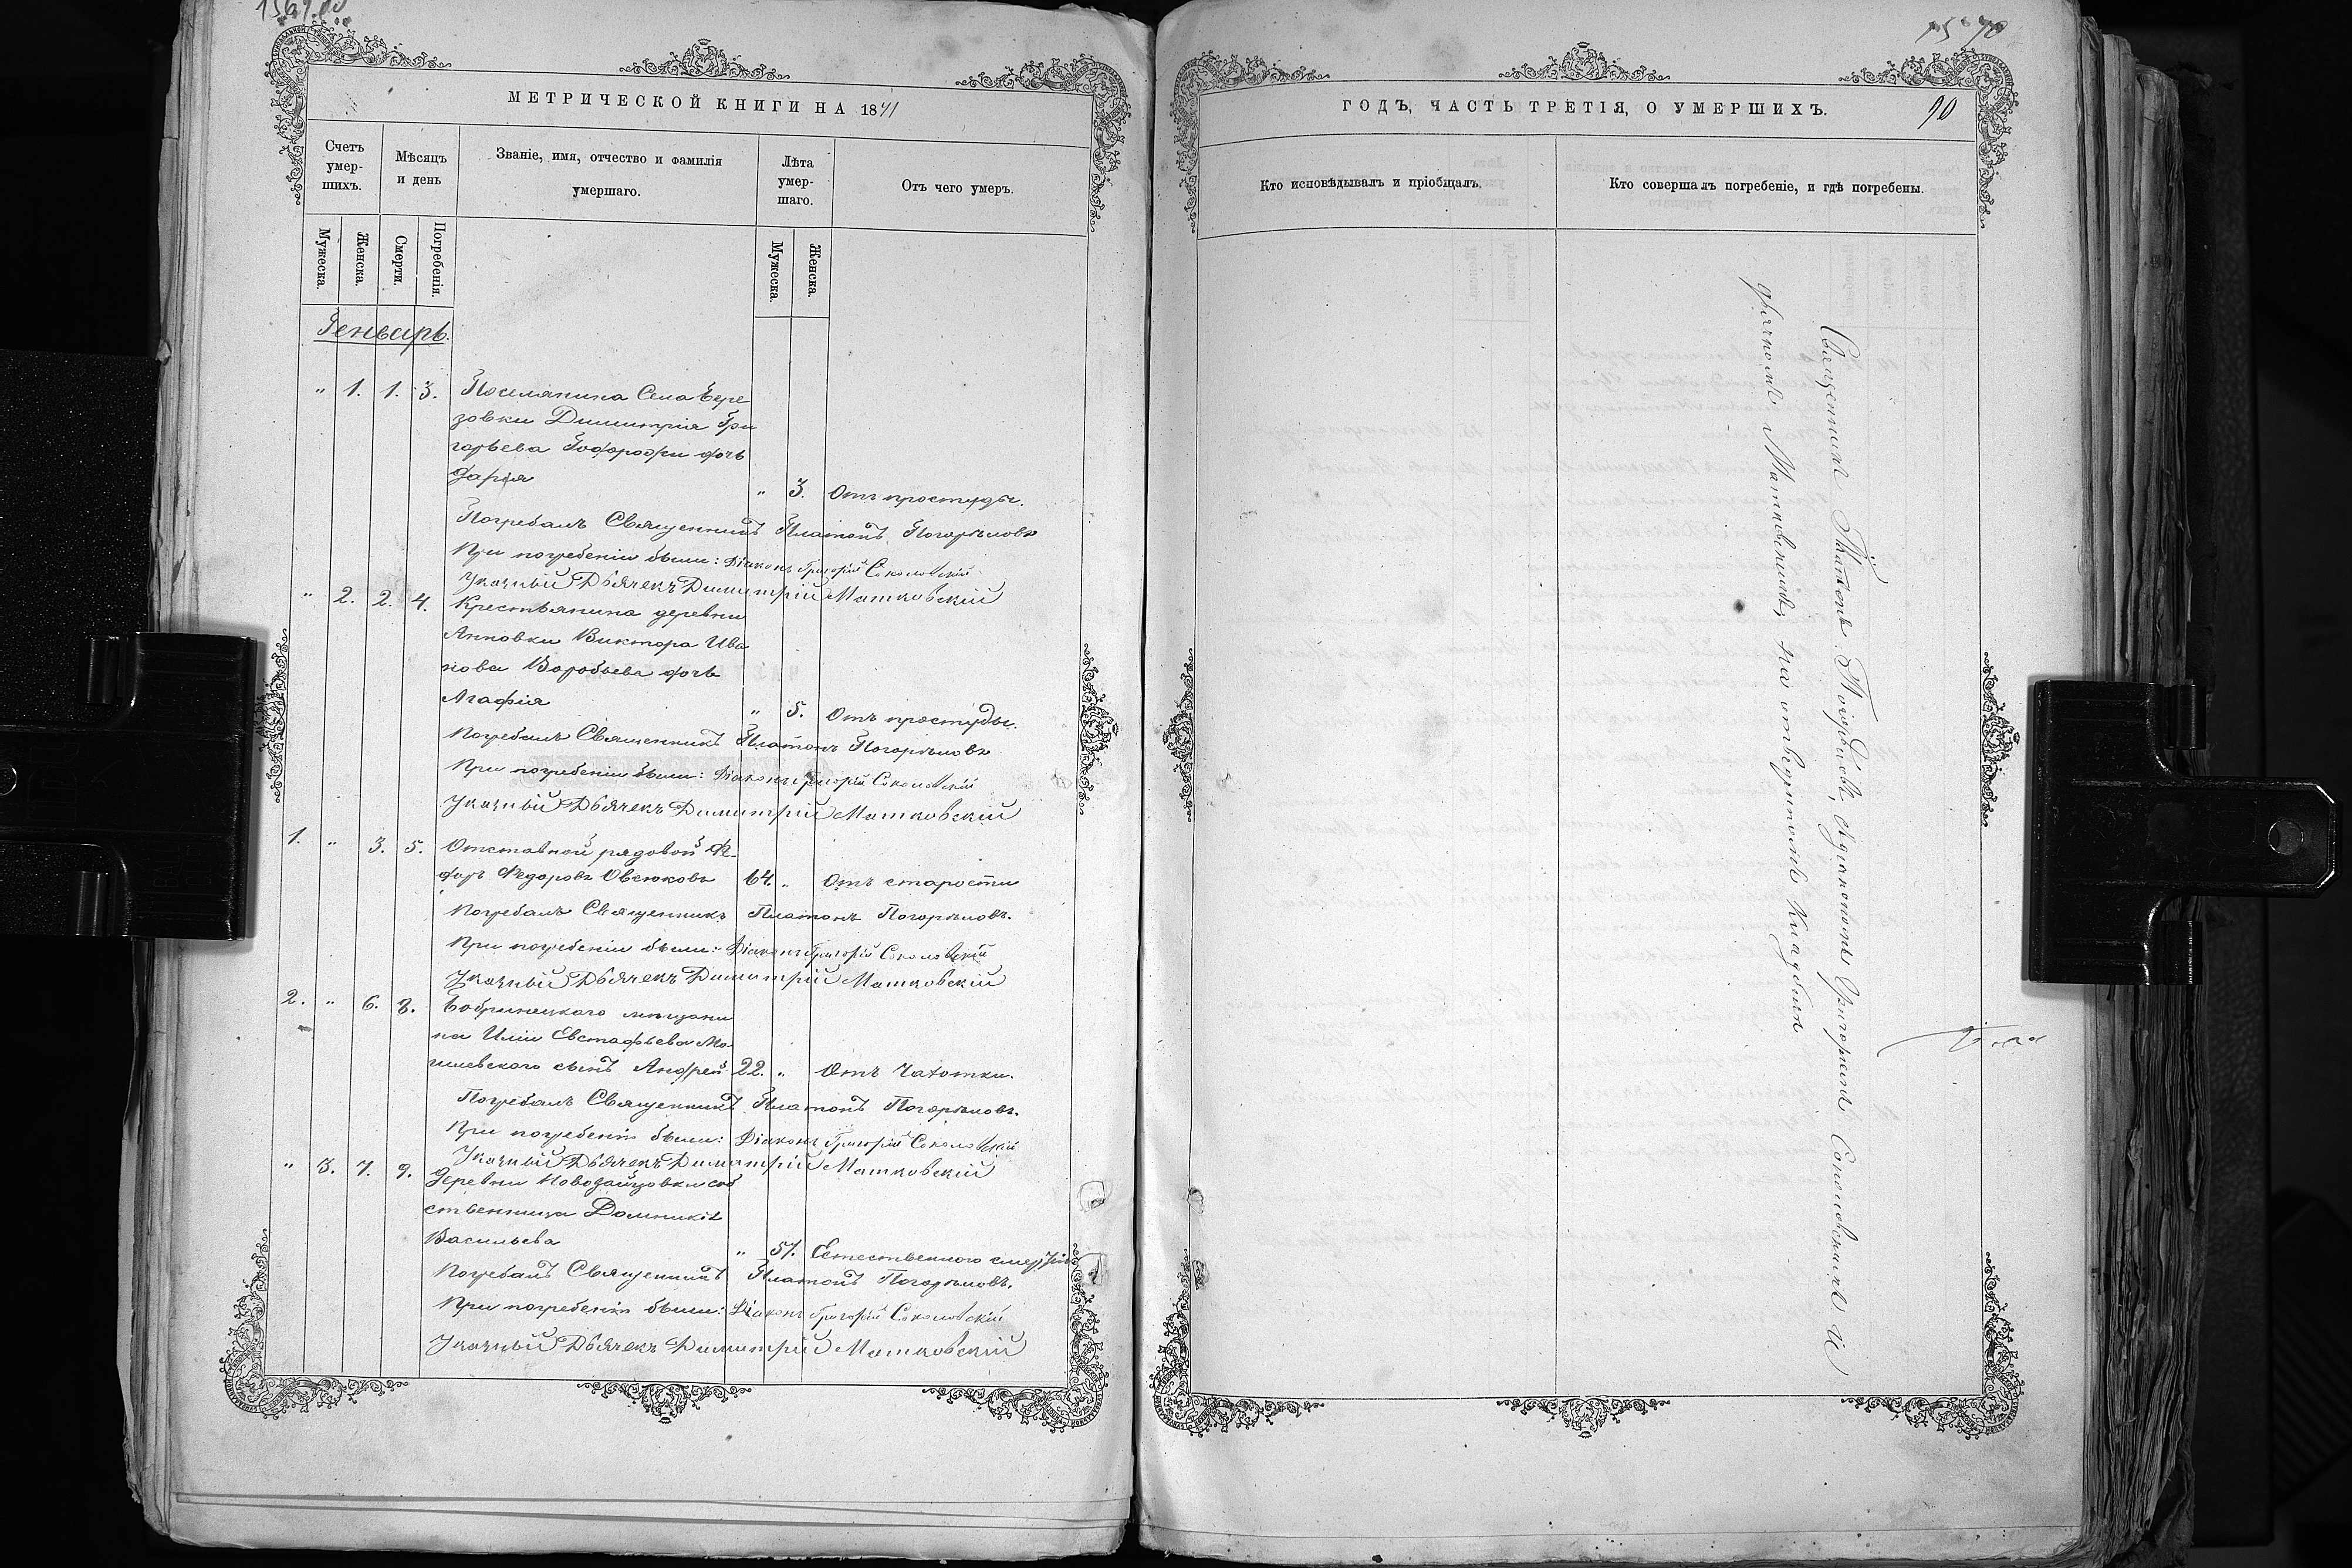 1569.об
МЕТРИЧЕСКОЙ КНИГИ НА 1871
Счетъ умер-шихъ.
Мѣсяцъ и день
Званіе, имя, отчество и фамилія умершаго.
Лѣта умер-шаго.
Отъ чего умеръ.
Мужеска.
Женска.
Смерти.
Погребенія.
Мужеска.
Женска.
Генварь.
" 1. 1. 3. Поселянина Села Бере
зовки Димитрія Гри
горьева дочь
Дарія " 3. Отъ простуды.
Погребалъ Священникъ Платонъ Погорѣловъ
При погребеніи были: Діаконъ Григорій Соколовскій
Указный Дьячекъ Димитрій Матковскій
" 2. 2. 4. Крестьянина деревни
Анновки Виктора Ива
нова Воробьева дочь
Агафія " 5. Отъ простуды.
Погребалъ Священникъ Платонъ Погорѣловъ
При погребеніи были: Діаконъ Григорій Соколовскій
Указный Дьячекъ Димитрій Матковскій
1. " 3. 5. Отставной рядовой Фе-
доръ Федоровъ Овсюковъ 64. " Отъ старости
Погребалъ Священникъ Платонъ Погорѣловъ.
При погребеніи были: Діаконъ Григорій Соколовскій
Указный Дьячекъ Димитрій Матковскій
2. " 6. 8. Бобринецкаго мѣщани
на Иліи Евстафьева Мо-
гилевскаго сынъ Андрей 22. " Отъ Чахотки.
Погребалъ Священникъ Платонъ Погорѣловъ.
При погребеніи были: Діаконъ Григорій Соколовскій
Указный Дьячекъ Димитрій Матковскій
" 3. 7. 9. Деревни Новозайцовки соб
ственница Домникія
Васильева " 57. Естественного смертію
Погребалъ Священникъ Платонъ Погорѣловъ.
При погребеніи были: Діаконъ Григорій Соколовскій
Указный Дьячекъ Димитрій Матковскій
1570
ГОДЪ, ЧАСТЬ ТРЕТІЯ, О УМЕРШИХЪ.
90
Кто исповѣдывалъ и пріобщалъ.
Кто совершалъ погребеніе, и гдѣ погребены.
Священникъ Платонъ Погорѣловъ, съ діакономъ Григоріемъ Соколовскимъ и
дьячкомъ Матковскимъ, на отведенномъ кладбищѣ